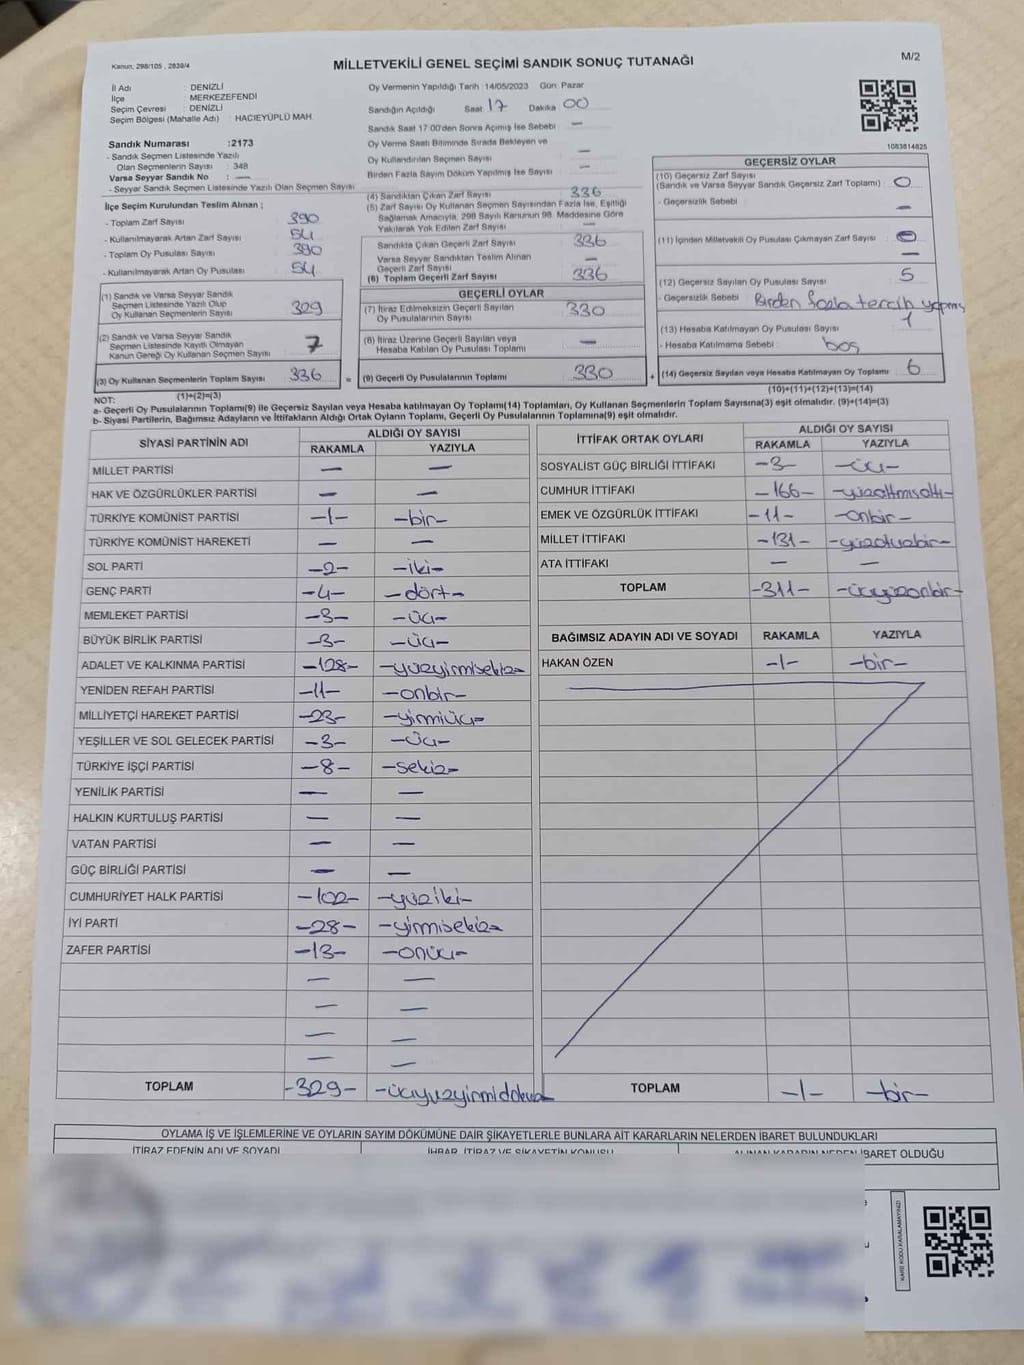 Kanun, 298/105 , 2839/4
MİLLETVEKİLİ GENEL SEÇİMİ SANDIK SONUÇ TUTANAĞI
M/2
İl Adı : DENİZLİ
İlçe : MERKEZEFENDİ
Seçim Çevresi : DENİZLİ
Seçim Bölgesi (Mahalle Adı) : HACIEYÜPLÜ MAH.
Sandık Numarası :2173
- Sandık Seçmen Listesinde Yazılı
Olan Seçmenlerin Sayısı : 348
Varsa Seyyar Sandık No : —
- Seyyar Sandık Seçmen Listesinde Yazılı Olan Seçmen Sayısı
Oy Vermenin Yapıldığı Tarih 14/05/2023 Gün: Pazar
Sandığın Açıldığı Saat 17 Dakika 00
Sandık Saat 17:00'den Sonra Açımış İse Sebebi —
Oy Verme Saati Bitiminde Sırada Bekleyen ve
Oy Kullandırılan Seçmen Sayısı —
Birden Fazla Sayım Döküm Yapılmış İse Sayısı —
1083814825
İlçe Seçim Kurulundan Teslim Alınan ;
- Toplam Zarf Sayısı 390
- Kullanılmayarak Artan Zarf Sayısı 54
- Toplam Oy Pusulası Sayısı 390
- Kullanılmayarak Artan Oy Pusulası 54
(1) Sandık ve Varsa Seyyar Sandık
Seçmen Listesinde Yazılı Olup
Oy Kullanan Seçmenlerin Sayısı 329
(2) Sandık ve Varsa Seyyar Sandık
Seçmen Listesinde Kayıtlı Olmayan
Kanun Gereği Oy Kullanan Seçmen Sayısı 7
(3) Oy Kullanan Seçmenlerin Toplam Sayısı 336 =
(1)+(2)=(3)
(4) Sandıktan Çıkan Zarf Sayısı 336
(5) Zarf Sayısı Oy Kullanan Seçmen Sayısından Fazla İse, Eşitliği
Sağlamak Amacıyla, 298 Sayılı Kanunun 98. Maddesine Göre
Yakılarak Yok Edilen Zarf Sayısı —
Sandıkta Çıkan Geçerli Zarf Sayısı 336
Varsa Seyyar Sandıktan Teslim Alınan
Geçerli Zarf Sayısı —
(6) Toplam Geçerli Zarf Sayısı 336
GEÇERLİ OYLAR
(7) İtiraz Edilmeksizin Geçerli Sayılan
Oy Pusulalarının Sayısı 330
(8) İtiraz Üzerine Geçerli Sayılan veya
Hesaba Katılan Oy Pusulası Toplamı —
(9) Geçerli Oy Pusulalarının Toplamı 330 +
GEÇERSİZ OYLAR
(10) Geçersiz Zarf Sayısı
(Sandık ve Varsa Seyyar Sandık Geçersiz Zarf Toplamı) 0
- Geçersizlik Sebebi : —
(11) İçinden Milletvekili Oy Pusulası Çıkmayan Zarf Sayısı 0
—
(12) Geçersiz Sayılan Oy Pusulası Sayısı 5
- Geçersizlik Sebebi Birden fazla tercih yapmış
(13) Hesaba Katılmayan Oy Pusulası Sayısı 1
- Hesaba Katılmama Sebebi : boş
(14) Geçersiz Sayılan veya Hesaba Katılmayan Oy Toplamı 6
(10)+(11)+(12)+(13)=(14)
NOT:
a- Geçerli Oy Pusulalarının Toplamı(9) ile Geçersiz Sayılan veya Hesaba katılmayan Oy Toplamı(14) Toplamları, Oy Kullanan Seçmenlerin Toplam Sayısına(3) eşit olmalıdır. (9)+(14)=(3)
b- Siyasi Partilerin, Bağımsız Adayların ve İttifakların Aldığı Ortak Oyların Toplamı, Geçerli Oy Pusulalarının Toplamına(9) eşit olmalıdır.
SİYASİ PARTİNİN ADI
ALDIĞI OY SAYISI
RAKAMLA YAZIYLA
MİLLET PARTİSİ — —
HAK VE ÖZGÜRLÜKLER PARTİSİ — —
TÜRKİYE KOMÜNİST PARTİSİ -1- -bir-
TÜRKİYE KOMÜNİST HAREKETİ — —
SOL PARTİ -2- -iki-
GENÇ PARTİ -4- -dört-
MEMLEKET PARTİSİ -3- -üç-
BÜYÜK BİRLİK PARTİSİ -3- -üç-
ADALET VE KALKINMA PARTİSİ -128- -yüzyirmisekiz-
YENİDEN REFAH PARTİSİ -11- -onbir-
MİLLİYETÇİ HAREKET PARTİSİ -23- -yirmiüç-
YEŞİLLER VE SOL GELECEK PARTİSİ -3- -üç-
TÜRKİYE İŞÇİ PARTİSİ -8- -sekiz-
YENİLİK PARTİSİ — —
HALKIN KURTULUŞ PARTİSİ — —
VATAN PARTİSİ — —
GÜÇ BİRLİĞİ PARTİSİ — —
CUMHURİYET HALK PARTİSİ -102- -yüziki-
İYİ PARTİ -28- -yirmisekiz-
ZAFER PARTİSİ -13- -onüç-
— —
— —
— —
— —
TOPLAM -329- -üçyüzyirmidokuz-
İTTİFAK ORTAK OYLARI
ALDIĞI OY SAYISI
RAKAMLA YAZIYLA
SOSYALİST GÜÇ BİRLİĞİ İTTİFAKI -3- -üç-
CUMHUR İTTİFAKI -166- -yüzaltmışaltı-
EMEK VE ÖZGÜRLÜK İTTİFAKI -11- -onbir-
MİLLET İTTİFAKI -131- -yüzotuzbir-
ATA İTTİFAKI — —
TOPLAM -311- -üçyüzonbir-
BAĞIMSIZ ADAYIN ADI VE SOYADI RAKAMLA YAZIYLA
HAKAN ÖZEN -1- -bir-
TOPLAM -1- -bir-
OYLAMA İŞ VE İŞLEMLERİNE VE OYLARIN SAYIM DÖKÜMÜNE DAİR ŞİKAYETLERLE BUNLARA AİT KARARLARIN NELERDEN İBARET BULUNDUKLARI
İTİRAZ EDENİN ADI VE SOYADI İHBAR, İTİRAZ VE ŞİKAYETİN KONUSU ALINAN KARARIN NEDEN İBARET OLDUĞU
KARE KODU KARALAMAYINIZ!